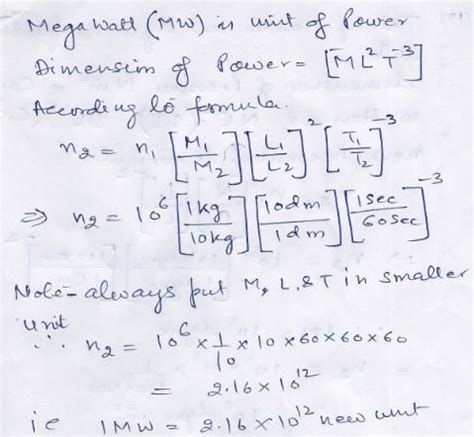 Mega Watt (MW) is unit of Power
Dimension of Power = [ML²T⁻³]
According to formula.
n₂ = n₁ [M₁/M₂] [L₁/L₂]² [T₁/T₂]⁻³
⇒ n₂ = 10⁶ [1kg/10kg] [10dm/1dm] [1sec/60sec]⁻³
Note - always put M, L & T in smaller
unit
∴ n₂ = 10⁶ × 1/10 × 10 × 60 × 60 × 60
= 2.16 × 10¹²
ie 1MW = 2.16 × 10¹² new unit